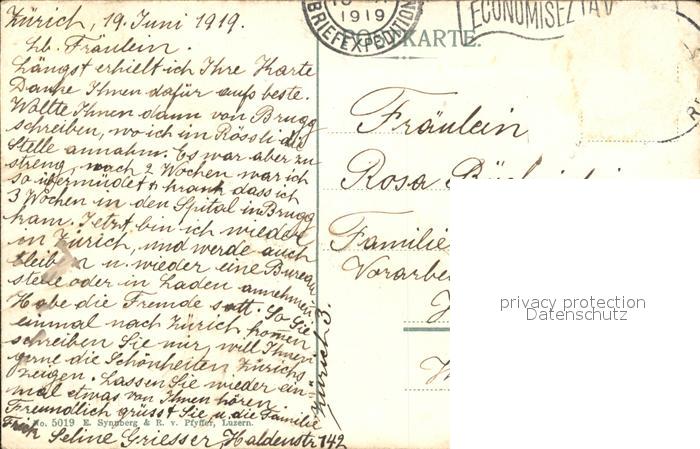 Zürich, 19. Juni 1919.
Lb. Fräulein.
Längst erhielt ich Ihre Karte
Danke Ihnen dafür aufs beste.
Wollte Ihnen dann von Brugg
schreiben, wo ich im Rössli die
Stelle annahm. Es war aber zu
streng, nach 2 Wochen war ich
so übermüdet & krank dass ich
3 Wochen in den Spital in Brugg
kam. Jetzt bin ich wieder
in Zürich, und werde auch
bleiben u. wieder eine Bureau
stelle oder in Laden annehmen
Habe die Fremde satt. So Sie
einmal nach Zürich komen
schreiben Sie mir, will Ihnen
gerne die Schönheiten Zürichs
zeigen. Lassen Sie wieder ein-
mal etwas von Ihnen hören.
Freundlich grüsst Sie, u. die Familie
Frick
Seline Griesser, Haldenstr 142
Zürich 3.
No. 5019 E. Synnberg & R. v. Pfyffer, Luzern.
1919
BRIEFEXPEDITION
ECONOMISEZ
POSTKARTE.
Fräulein
Rosa
Familie
Vorarbe
privacy protection
Datenschutz